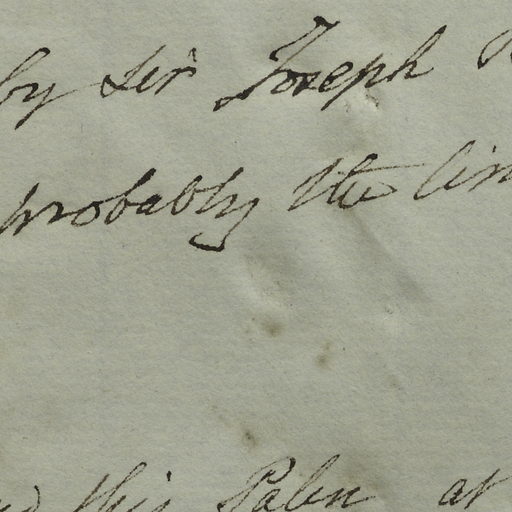 by Sir Joseph
probably the
this Palm at